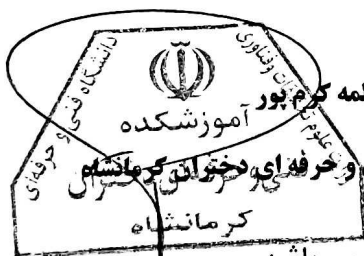 دانشگاه فنی و حرفه‌ای
وزارت علوم تحقیقات و فناوری
مه کرم پور
آموزشکده
و حرفه ای دختران کرمانشاه
دختران
کرمانشاه
باشد